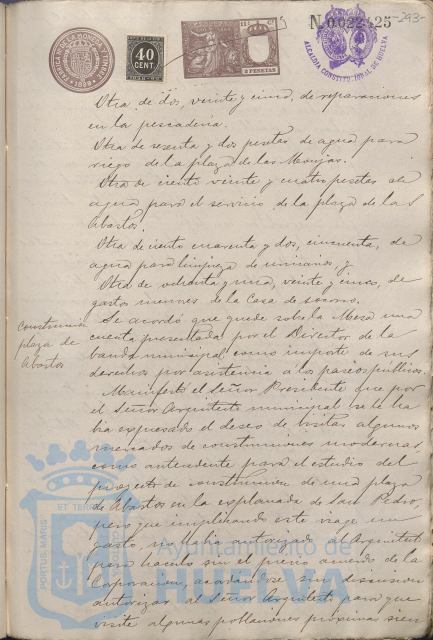 N.0022425
-293-
FABRICA DE LA MONEDA Y TIMBRE
1899
40
CENT.
2 PESETAS
ALCALDÍA CONSTITUCIONAL DE HUELVA
Otra de dos, veinte y cinco, de reparaciones
en la pescadería.
Otra de sesenta y dos pesetas de agua para
riego de la plaza de las Monjas.
Otra de ciento veinte y cuatro pesetas de
agua para el servicio de la plaza de los
Abastos.
Otra de ciento cuarenta y dos, cincuenta, de
agua para limpieza de urinarios, y
Otra de ochenta y una, veinte y cinco, de
gastos menores de la Casa de socorro.
Se acordó que quede sobre la Mesa una
cuenta presentada por el Director de la
banda municipal como importe de sus
derechos por asistencia a los paseos públicos.
construcción
plaza de
Abastos
Manifestó el Señor Presidente que por
el Señor Arquitecto municipal se le ha
bia expresado el deseo de visitar algunos
mercados de construcciones modernas,
como antecedente para el estudio del
proyecto de construccion de una plaza
de Abastos en la esplanada de San Pedro,
pero que implicando este viage un
gasto, no habia autorizado al Arquitecto
para hacerlo sin el previo acuerdo de la
Corporacion, acordandose sin discusion
autorizar al Señor Arquitecto para que
visite algunas poblaciones proximas sien
PORTUS MARIS
ET TERRAE
Ayuntamiento de
HUELVA